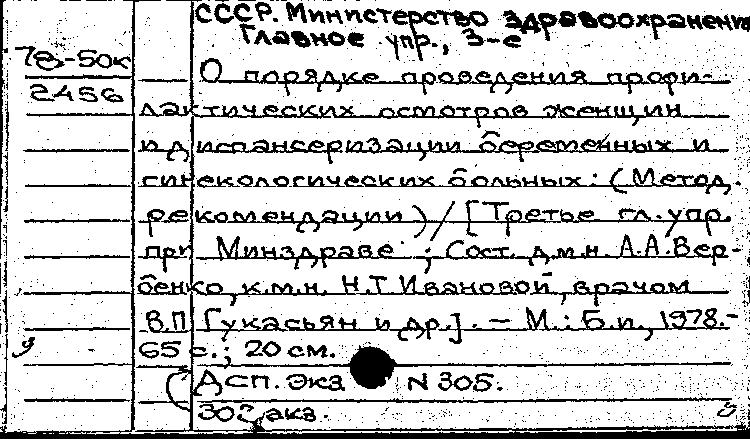 СССР. Министерство здравоохранени
Главное упр., 3-е
78-50к
2456
О порядке проведения профи-
лактических осмотров женщин
и диспансеризации беременных и
гинекологических больных: (Метод.
рекомендации) / [Третье гл. упр.
при Минздраве ; Сост. д.м.н. А.А. Вер-
бенко, к.м.н. Н.Т Ивановой, врачом
В.П Гукасьян и др.]. - М.: Б.и., 1978.-
65 с.; 20 см.
Асп. экз N 305.
302 экз.